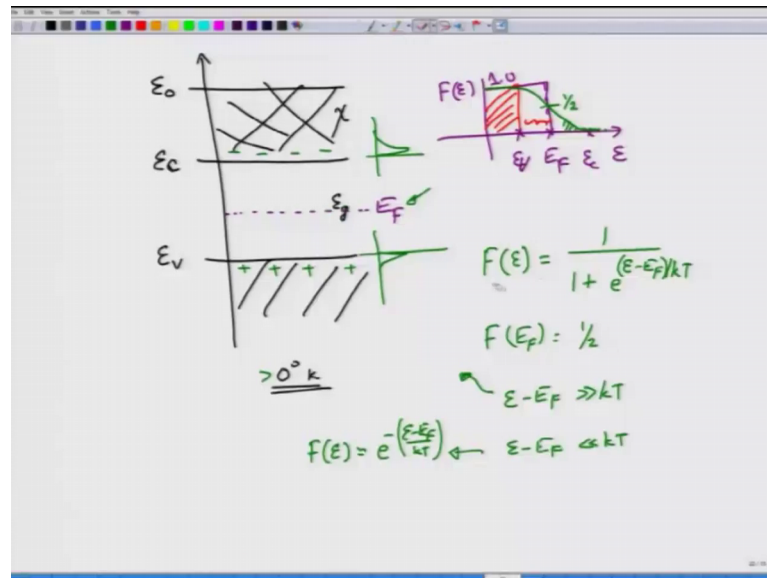 ε₀
χ
εc
εg
E_F
εv
>0° k
F(ε)
1.0
½
εv E_F εc ε
F(ε) = 1 / (1 + e^((ε-E_F)/kT))
F(E_F) = ½
ε-E_F ≫kT
F(ε) = e^-((ε-E_F)/kT) ← ε-E_F ≪kT